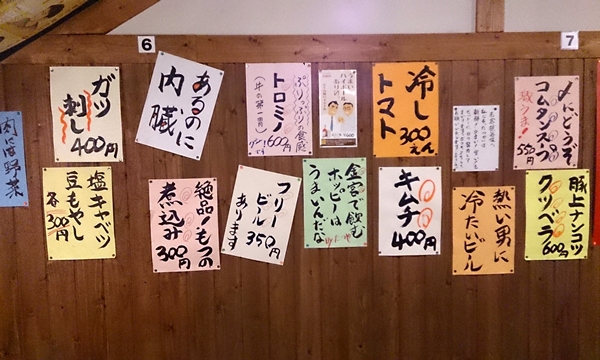 6
7
ガツ
刺し
400円
あるのに
内臓
ぷりっぷりの食感
トロミノ
(牛の第一胃)
600円
冷し
トマト
300えん
〆にどうぞ
コムタンスープ
550円
肉に野菜
塩キャベツ
豆もやし
各300円
絶品!もつの
煮込み
300円
フリー
ビール
350円
あります
金宮で飲む
ホッピーは
うまいんだな
キムチ
400円
熱い男に
冷たいビール
豚上ナンコツ
クツベラ
600円